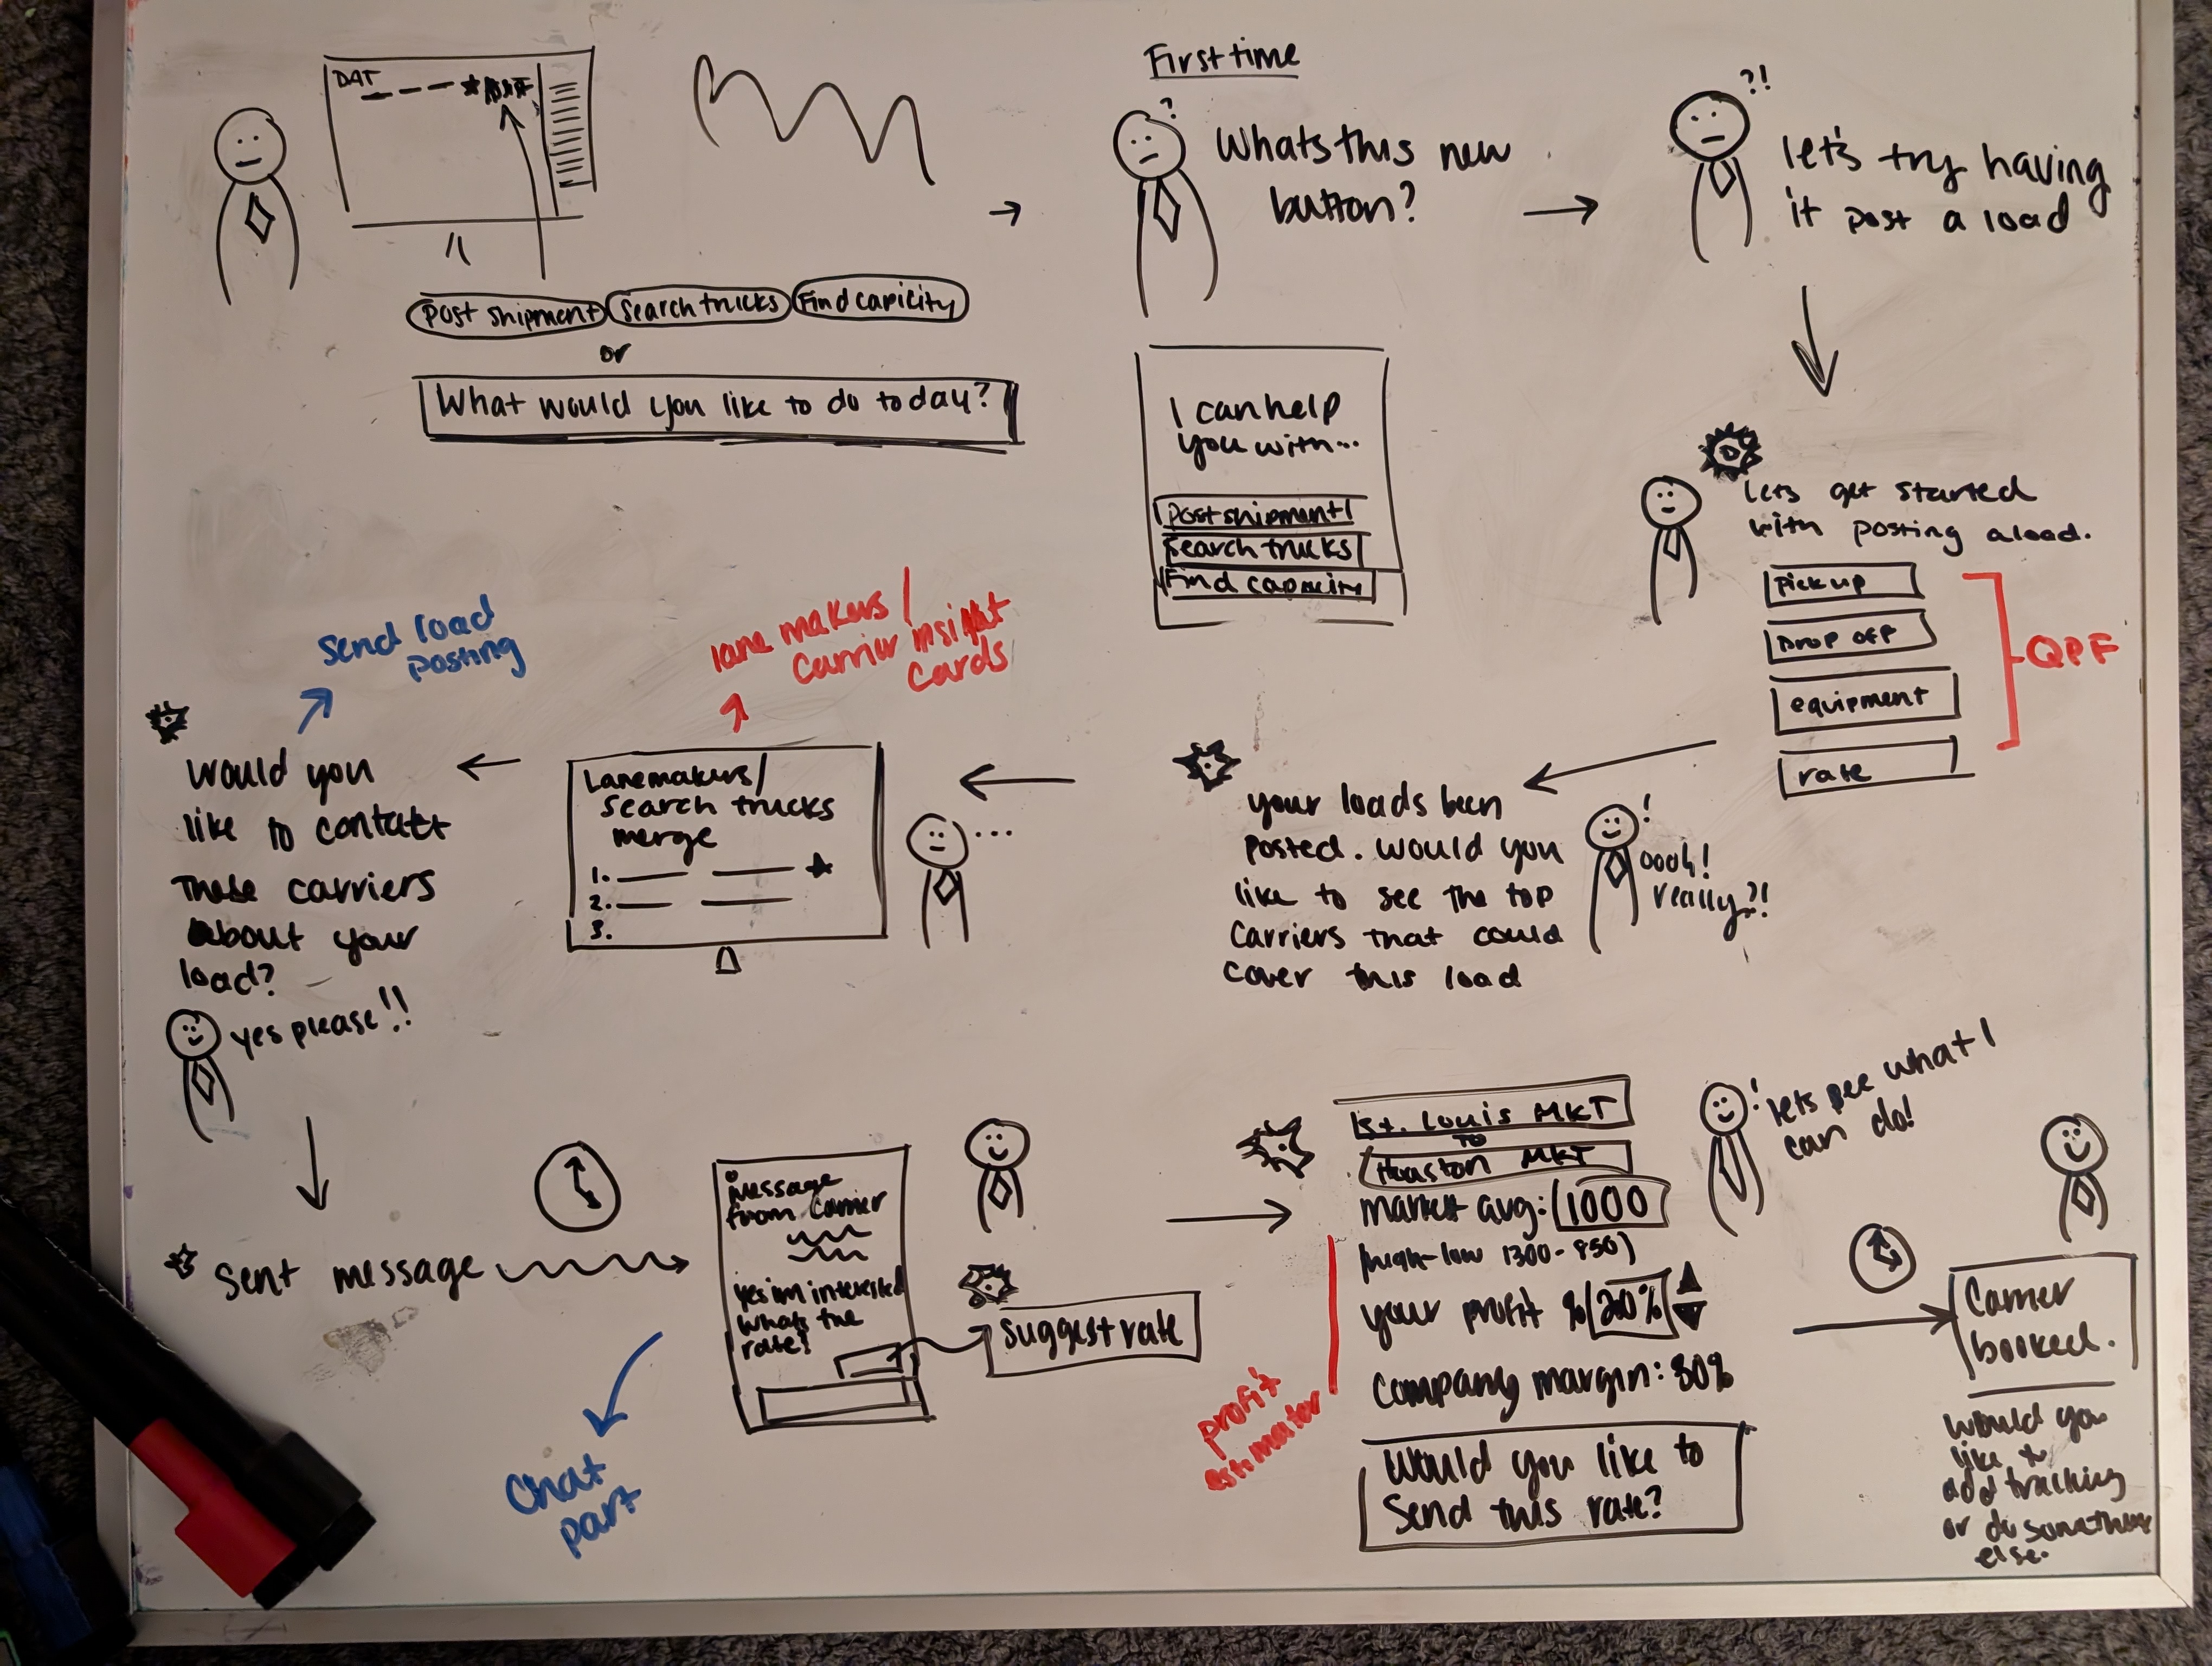 DAT
Post shipment
Search trucks
Find capicity
or
What would you like to do today?
First time
?
Whats this new
button?
I can help
you with...
Post shipment
Search trucks
Find capacity
?!
let's try having
it post a load
lets get started
with posting a load.
Pick up
Drop off
equipment
rate
QPF
your loads been
posted. would you
like to see the top
carriers that could
cover this load
!
oooh!
really?!
lane makers /
Carrier insight
Cards
Lanemakers/
Search trucks
merge
1.
2.
3.
...
Send load
posting
would you
like to contact
these carriers
about your
load?
yes please!!
Sent message
Message
from Carrier
yes im interested
whats the
rate?
Chat
part
Suggest rate
St. Louis MKT
TO
Houston MKT
market avg: 1000
(high-low 1300-850)
your profit % 20%
Company margin: 80%
Would you like to
Send this rate?
profit
estimator
!
lets see what I
can do!
Carrier
booked.
would you
like to
add tracking
or do something
else.